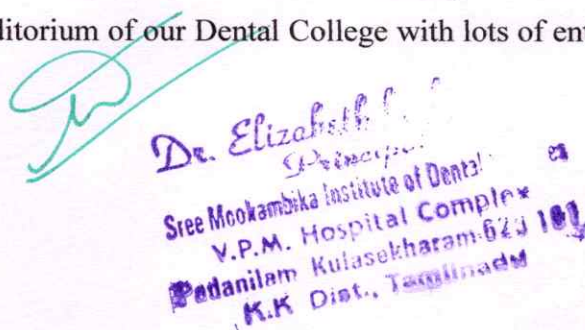 ditorium of our Dental College with lots of ent
Dr. Elizabeth
Principal
Sree Mookambika Institute of Dental
V.P.M. Hospital Complex
Padanilam Kulasekharam-629 161
K.K Dist., Tamilnadu